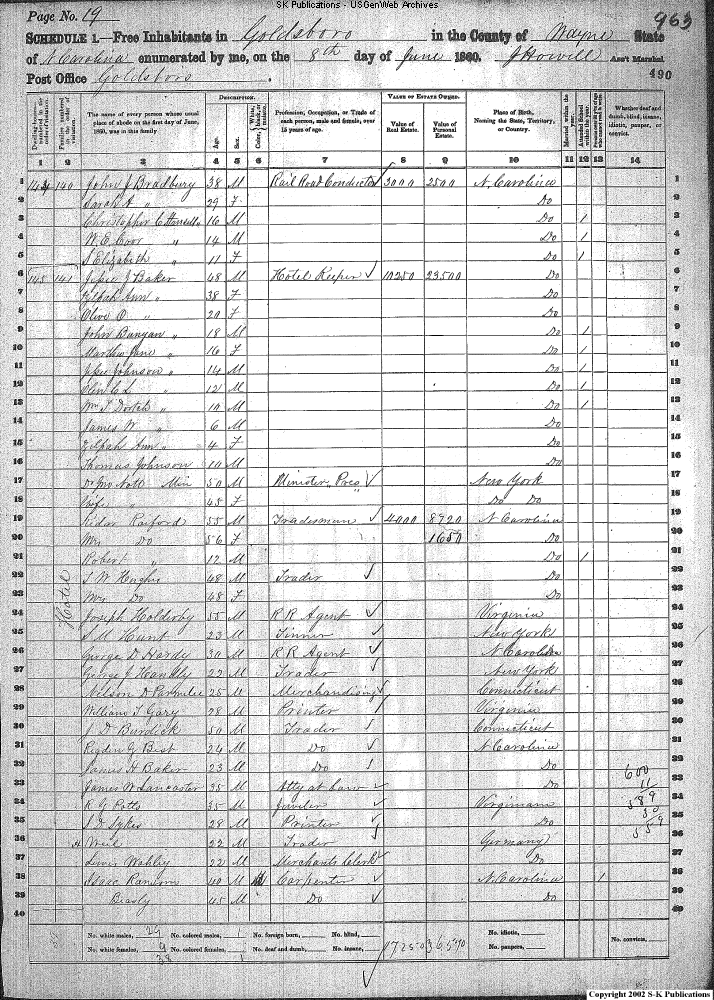 SK Publications - USGenWeb Archives
Page No. 19
963
SCHEDULE 1.—Free Inhabitants in Goldsboro in the County of Wayne State
of N Carolina enumerated by me, on the 8th day of June 1860. J Howell Ass't Marshal
Post Office Goldsboro.
490
Dwelling-houses numbered in the order of visitation.
Families numbered in the order of visitation.
The name of every person whose usual place of abode on the first day of June, 1860, was in this family
DESCRIPTION.
Age.
Sex.
Color, White, black, or mulatto.
Profession, Occupation, or Trade of each person, male and female, over 15 years of age.
VALUE OF ESTATE OWNED.
Value of Real Estate.
Value of Personal Estate.
Place of Birth, Naming the State, Territory, or Country.
Married within the year.
Attended School within the year.
Whether deaf and dumb, blind, insane, idiotic, pauper, or convict.
1 2 3 4 5 6 7 8 9 10 11 12 13 14
1 144 140 John J Bradbury 38 M Rail Road Conductor 3000 2500 N. Carolina 1
2 Sarah A " 29 F Do 2
3 Christopher C 16 M Do 1 3
4 W. E. Coor " 14 M Do 1 4
5 S Elizabeth " 11 F Do 1 5
6 145 141 Jesse J Baker 48 M Hotel Keeper 10250 23500 Do 6
7 Zilpah Ann " 38 F Do 7
8 Olive O " 20 F Do 8
9 John Bunyan " 18 M Do 1 9
10 Martha Jane " 16 F Do 1 10
11 Jesse Johnson " 14 M Do 1 11
12 C L " 12 M Do 1 12
13 Wm T Dortch " 10 M Do 1 13
14 James W " 6 M Do 14
15 Zilpah Ann " 4 F Do 15
16 Thomas Johnson 10 M Do 16
17 50 M Minister, Pres New York 17
18 Wife " 45 F Do Do 18
19 Raiford 55 M Tradesman 4000 8720 N Carolina 19
20 Mrs Do 56 F 1650 Do 20
21 Robert " 12 M Do 1 21
22 S W Hughs 48 M Trader Do 22
23 Mrs Do 48 F Do 23
Hotel
24 Joseph Holderby 55 M R R Agent Virginia 24
25 S M Hunt 23 M Tinner New York 25
26 George D Hardy 30 M R R Agent N Carolina 26
27 George J Handly 22 M Trader New York 27
28 Nelson D Parmelee 25 M Merchandising Connecticut 28
29 William T Gary 28 M Printer Virginia 29
30 J D Burdick 50 M Trader Connecticut 30
31 G Best 24 M Do N Carolina 31
32 James H Baker 23 M Do Do 32
33 James W Lancaster 35 M Atty at Law Do 33
34 R G Potts 35 M Jeweler Virginia 34
35 Sykes 28 M Printer Do 35
36 H Weil 22 M Trader Germany 36
37 Lewis 22 M Merchants Clerk Do 37
38 Isaac Ransom 40 M M Carpenter N. Carolina 1 38
39 Beasly 45 M Do Do 39
40 40
600
11
589
30
559
No. white males, 29 No. colored males, 1 No. foreign born, No. blind, No. idiotic,
No. white females, 9 No. colored females, No. deaf and dumb, No. insane, No. paupers, No. convicts,
38 1
17250 36540
Copyright 2002 S-K Publications